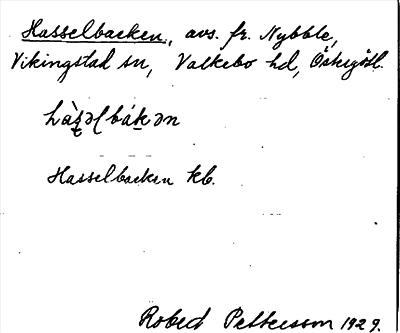 Hasselbacken, avs. fr. Nybble,
Vikingstad sn, Valkebo hd, Östergötl.
hàʂəlbákən
Hasselbacken kb.
Robert Pettersson 1929.